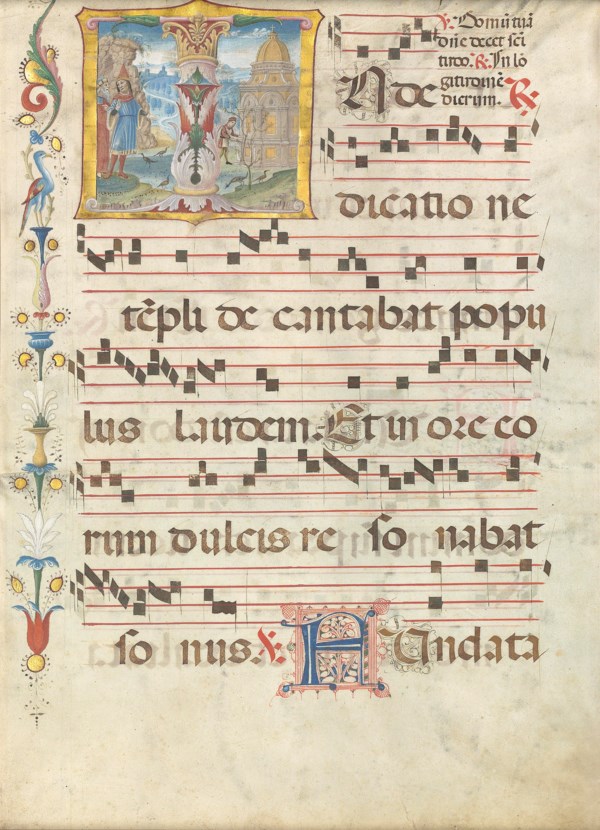 ℣. Domum tuã
dñe decet scĩ
tudo. ℟. In lõ
gitudinẽ
dierum. ℟.
IN de
dicatio ne
tẽpli de cantabat popu
lus laudem. Et in ore eo
rum dulcis re so nabat
so nus. ℣. FUndata